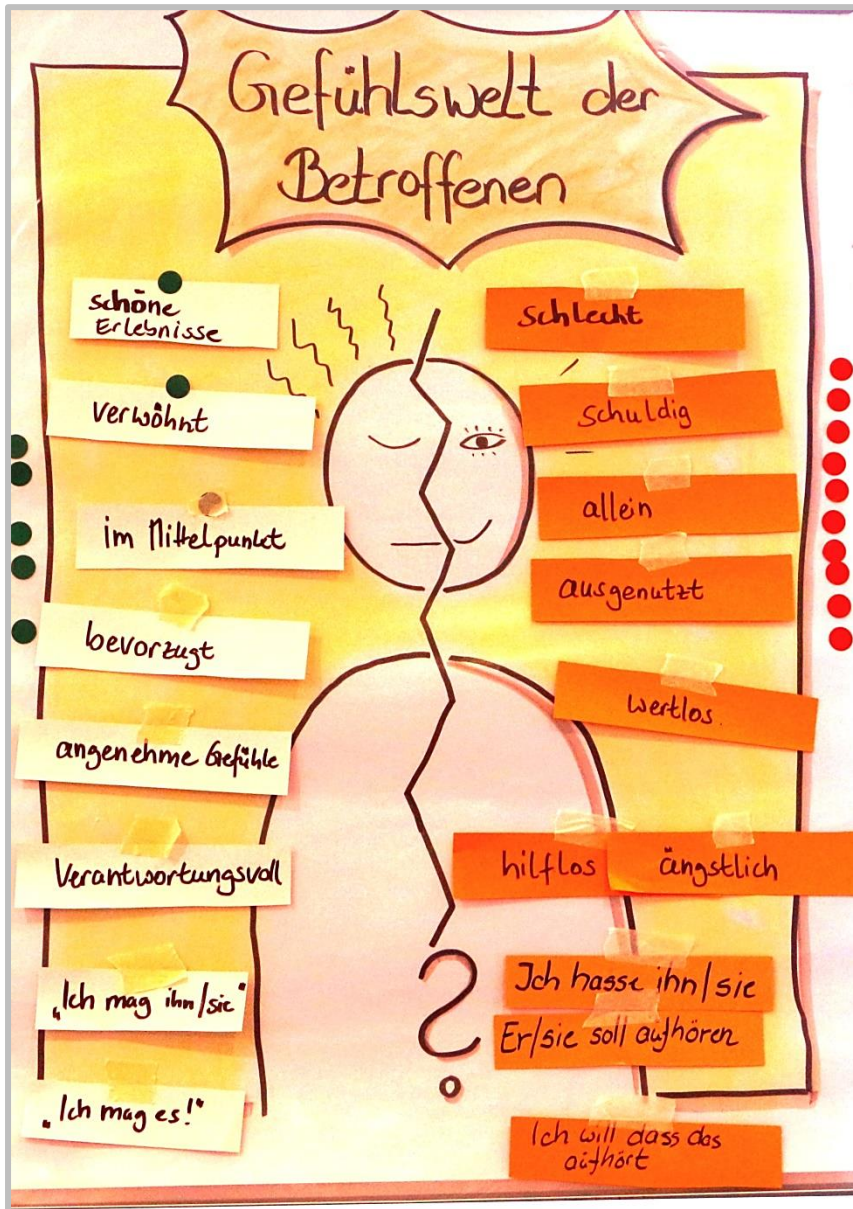 Gefühlswelt der
Betroffenen
schöne
Erlebnisse
verwöhnt
im Mittelpunkt
bevorzugt
angenehme Gefühle
Verantwortungsvoll
„Ich mag ihn/sie"
„Ich mag es!"
schlecht
schuldig
allein
ausgenutzt
wertlos.
hilflos
ängstlich
Ich hasse ihn/sie
Er/sie soll aufhören
Ich will dass das
aufhört